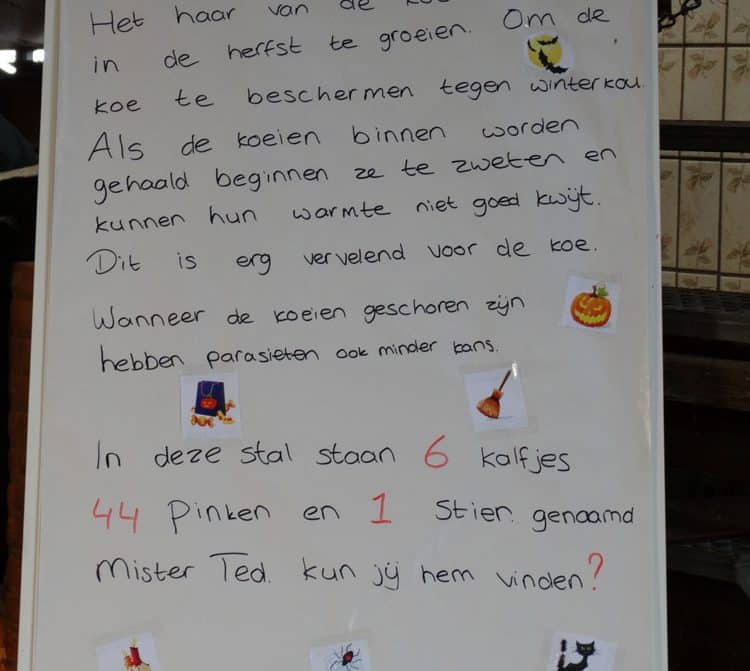 Het haar van de
in de herfst te groeien. Om de
koe te beschermen tegen winterkou.
Als de koeien binnen worden
gehaald beginnen ze te zweten en
kunnen hun warmte niet goed kwijt.
Dit is erg vervelend voor de koe.
Wanneer de koeien geschoren zijn
hebben parasieten ook minder kans.
In deze stal staan 6 kalfjes
44 Pinken en 1 Stier. genaamd
Mister Ted. kun jij hem vinden?